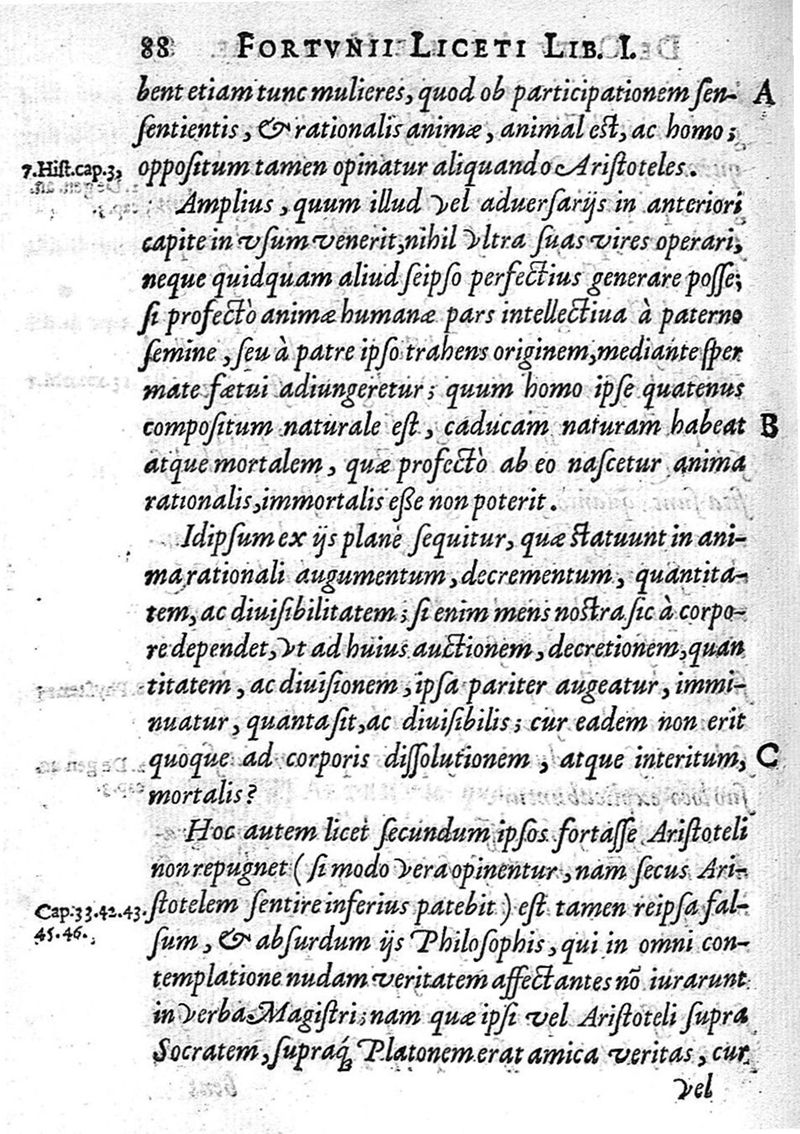 88 FORTVNII LICETI LIB. I.
bent etiam tunc mulieres, quod ob participationem sen- A
sentientis, & rationalis animæ, animal est, ac homo;
7. Hist. cap. 3, oppositum tamen opinatur aliquando Aristoteles.
Amplius, quum illud vel aduersarijs in anteriori
capite in vsum venerit, nihil vltra suas vires operari,
neque quidquam aliud seipso perfectius generare posse;
si profectò animæ humanæ pars intellectiua à paterno
semine, seu à patre ipso trahens originem, mediante sper
mate fætui adiungeretur; quum homo ipse quatenus
compositum naturale est, caducam naturam habeat B
atque mortalem, quæ profectò ab eo nascetur anima
rationalis, immortalis esse non poterit.
Idipsum ex ijs planè sequitur, quæ statuunt in ani-
ma rationali augumentum, decrementum, quantita-
tem, ac diuisibilitatem; si enim mens nostra sic à corpo-
re dependet, vt ad huius auctionem, decretionem, quan
titatem, ac diuisionem, ipsa pariter augeatur, immi-
nuatur, quanta sit, ac diuisibilis; cur eadem non erit
quoque ad corporis dissolutionem, atque interitum, C
mortalis?
Hoc autem licet secundum ipsos fortasse Aristoteli
non repugnet (si modo vera opinentur, nam secus Ari-
Cap. 33. 42. 43. stotelem sentire inferius patebit) est tamen reipsa fal-
45. 46., sum, & absurdum ijs Philosophis, qui in omni con-
templatione nudam veritatem affectantes nõ iurarunt
in verba Magistri; nam quæ ipsi vel Aristoteli supra
Socratem, supraq́; Platonem erat amica veritas, cur
vel